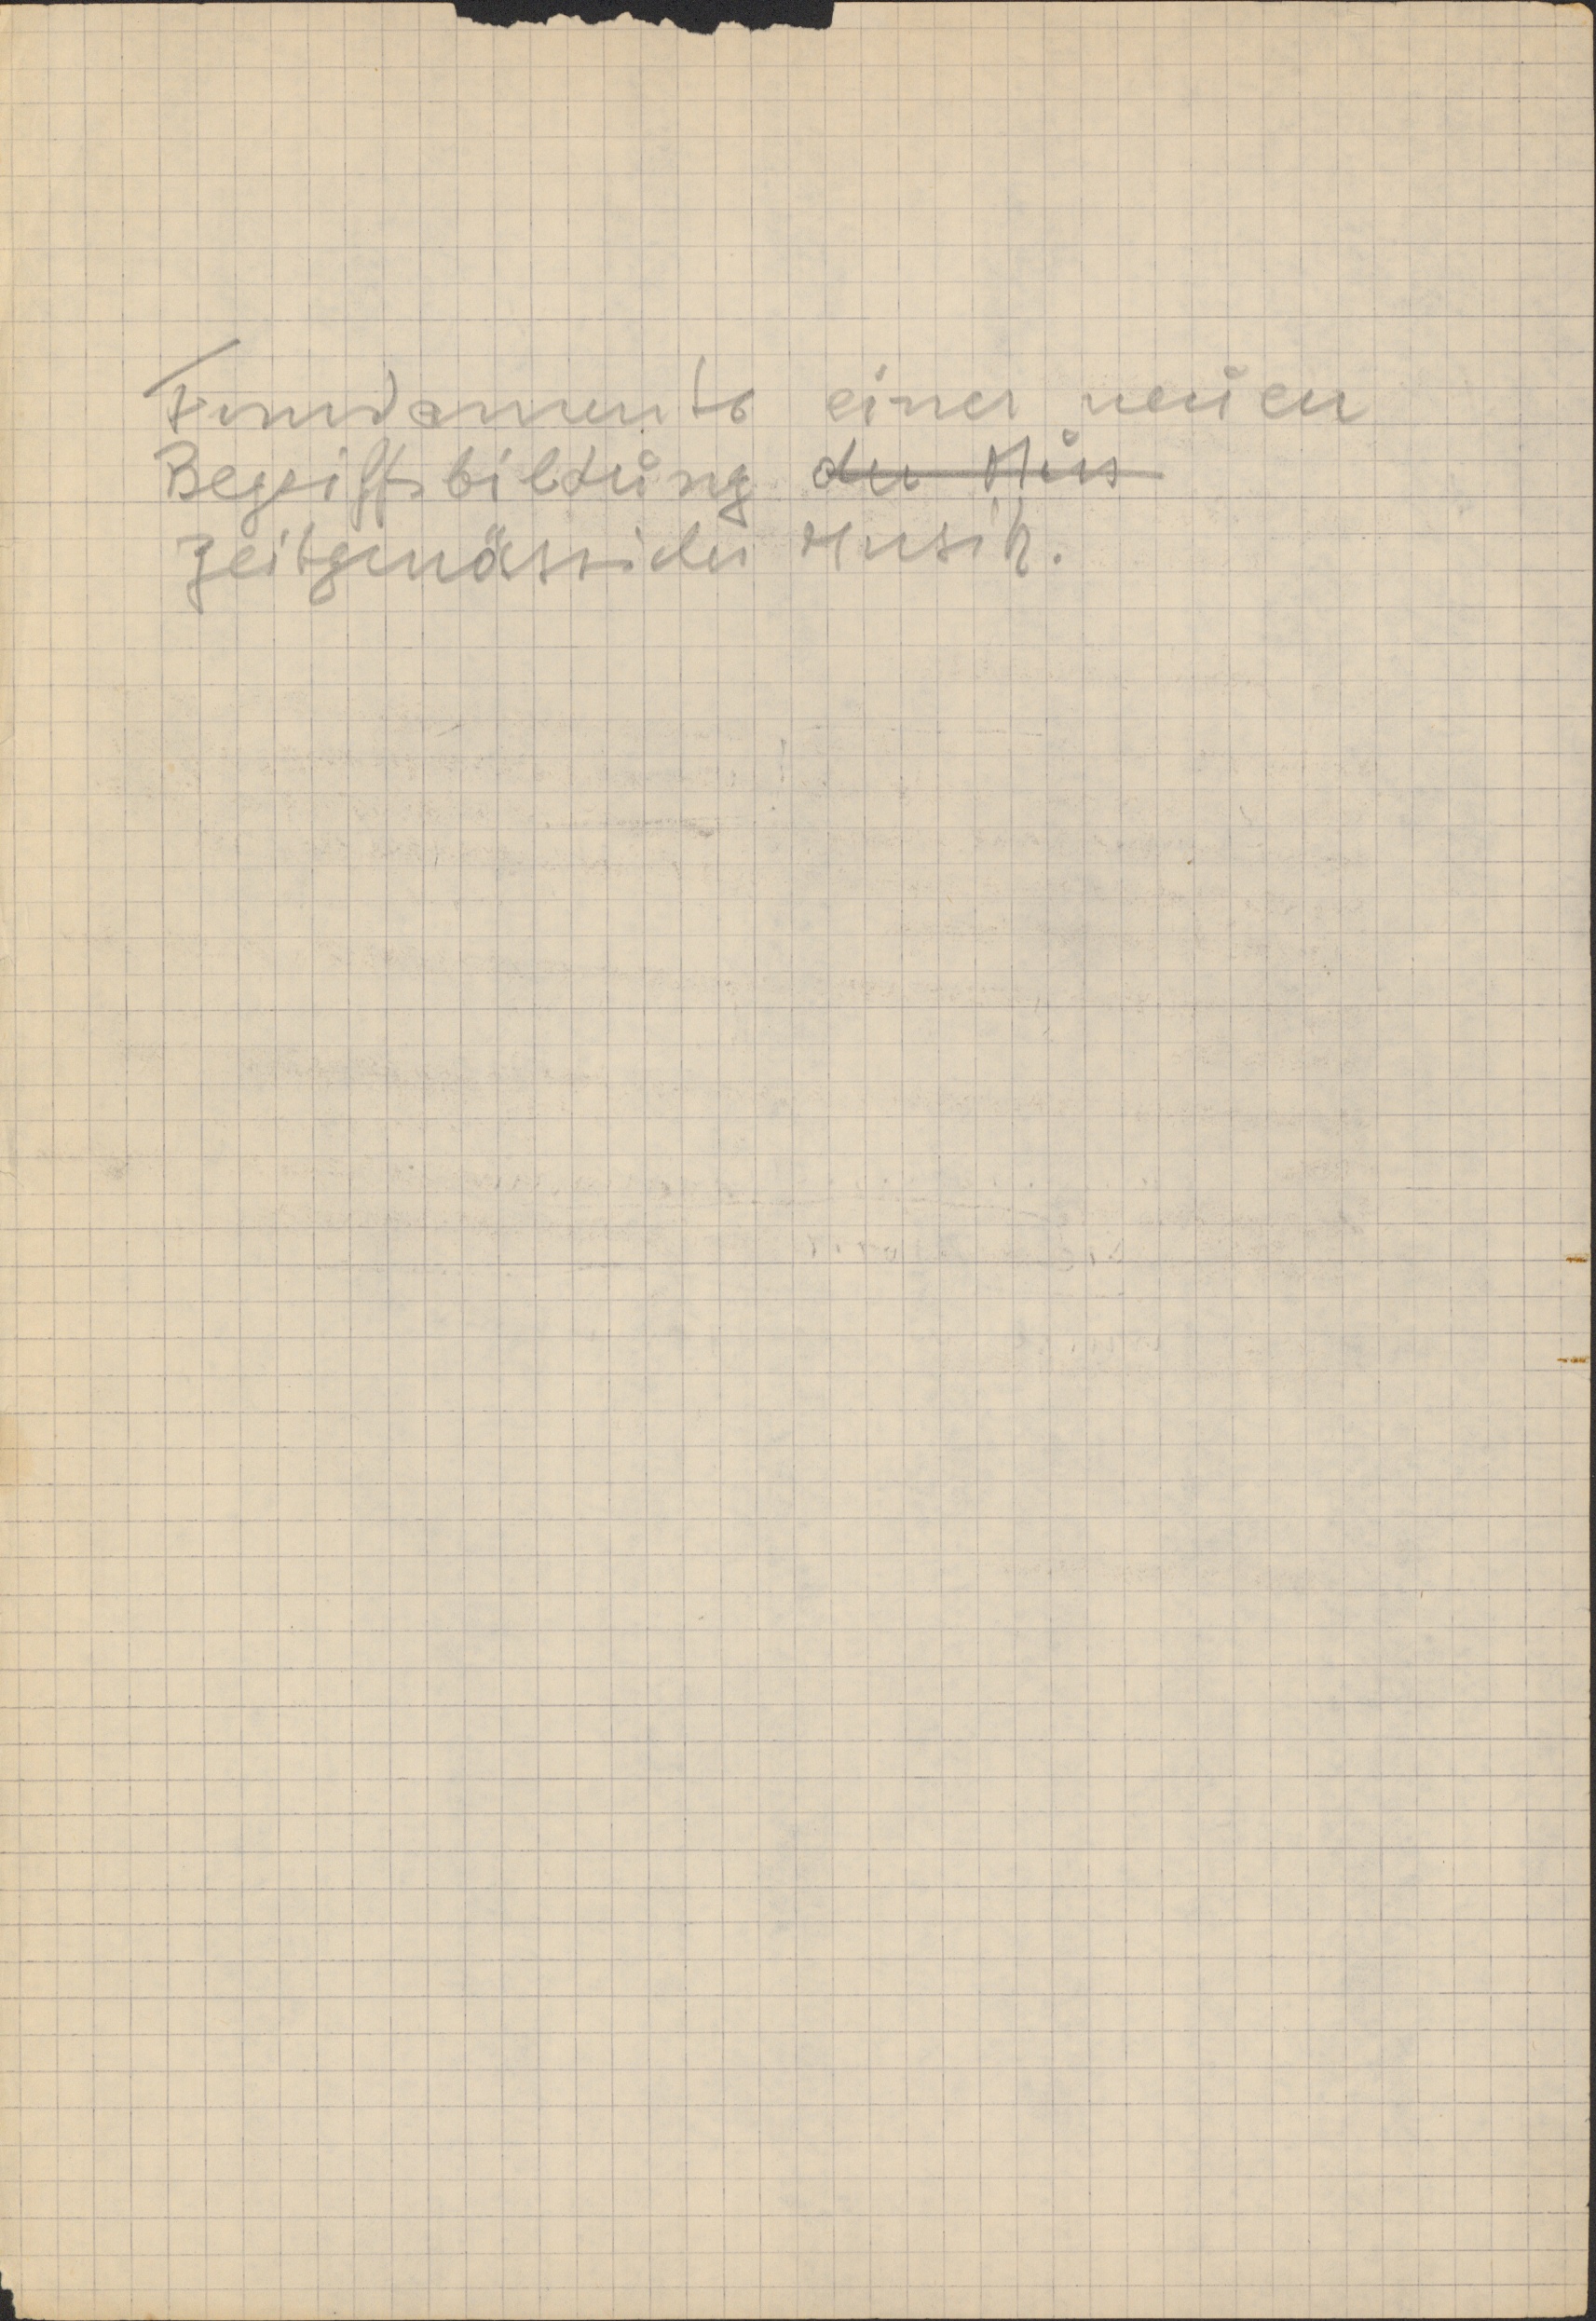 Fundamente einer neuen
Begriffsbildung der Mus
zeitgenössischer Musik.